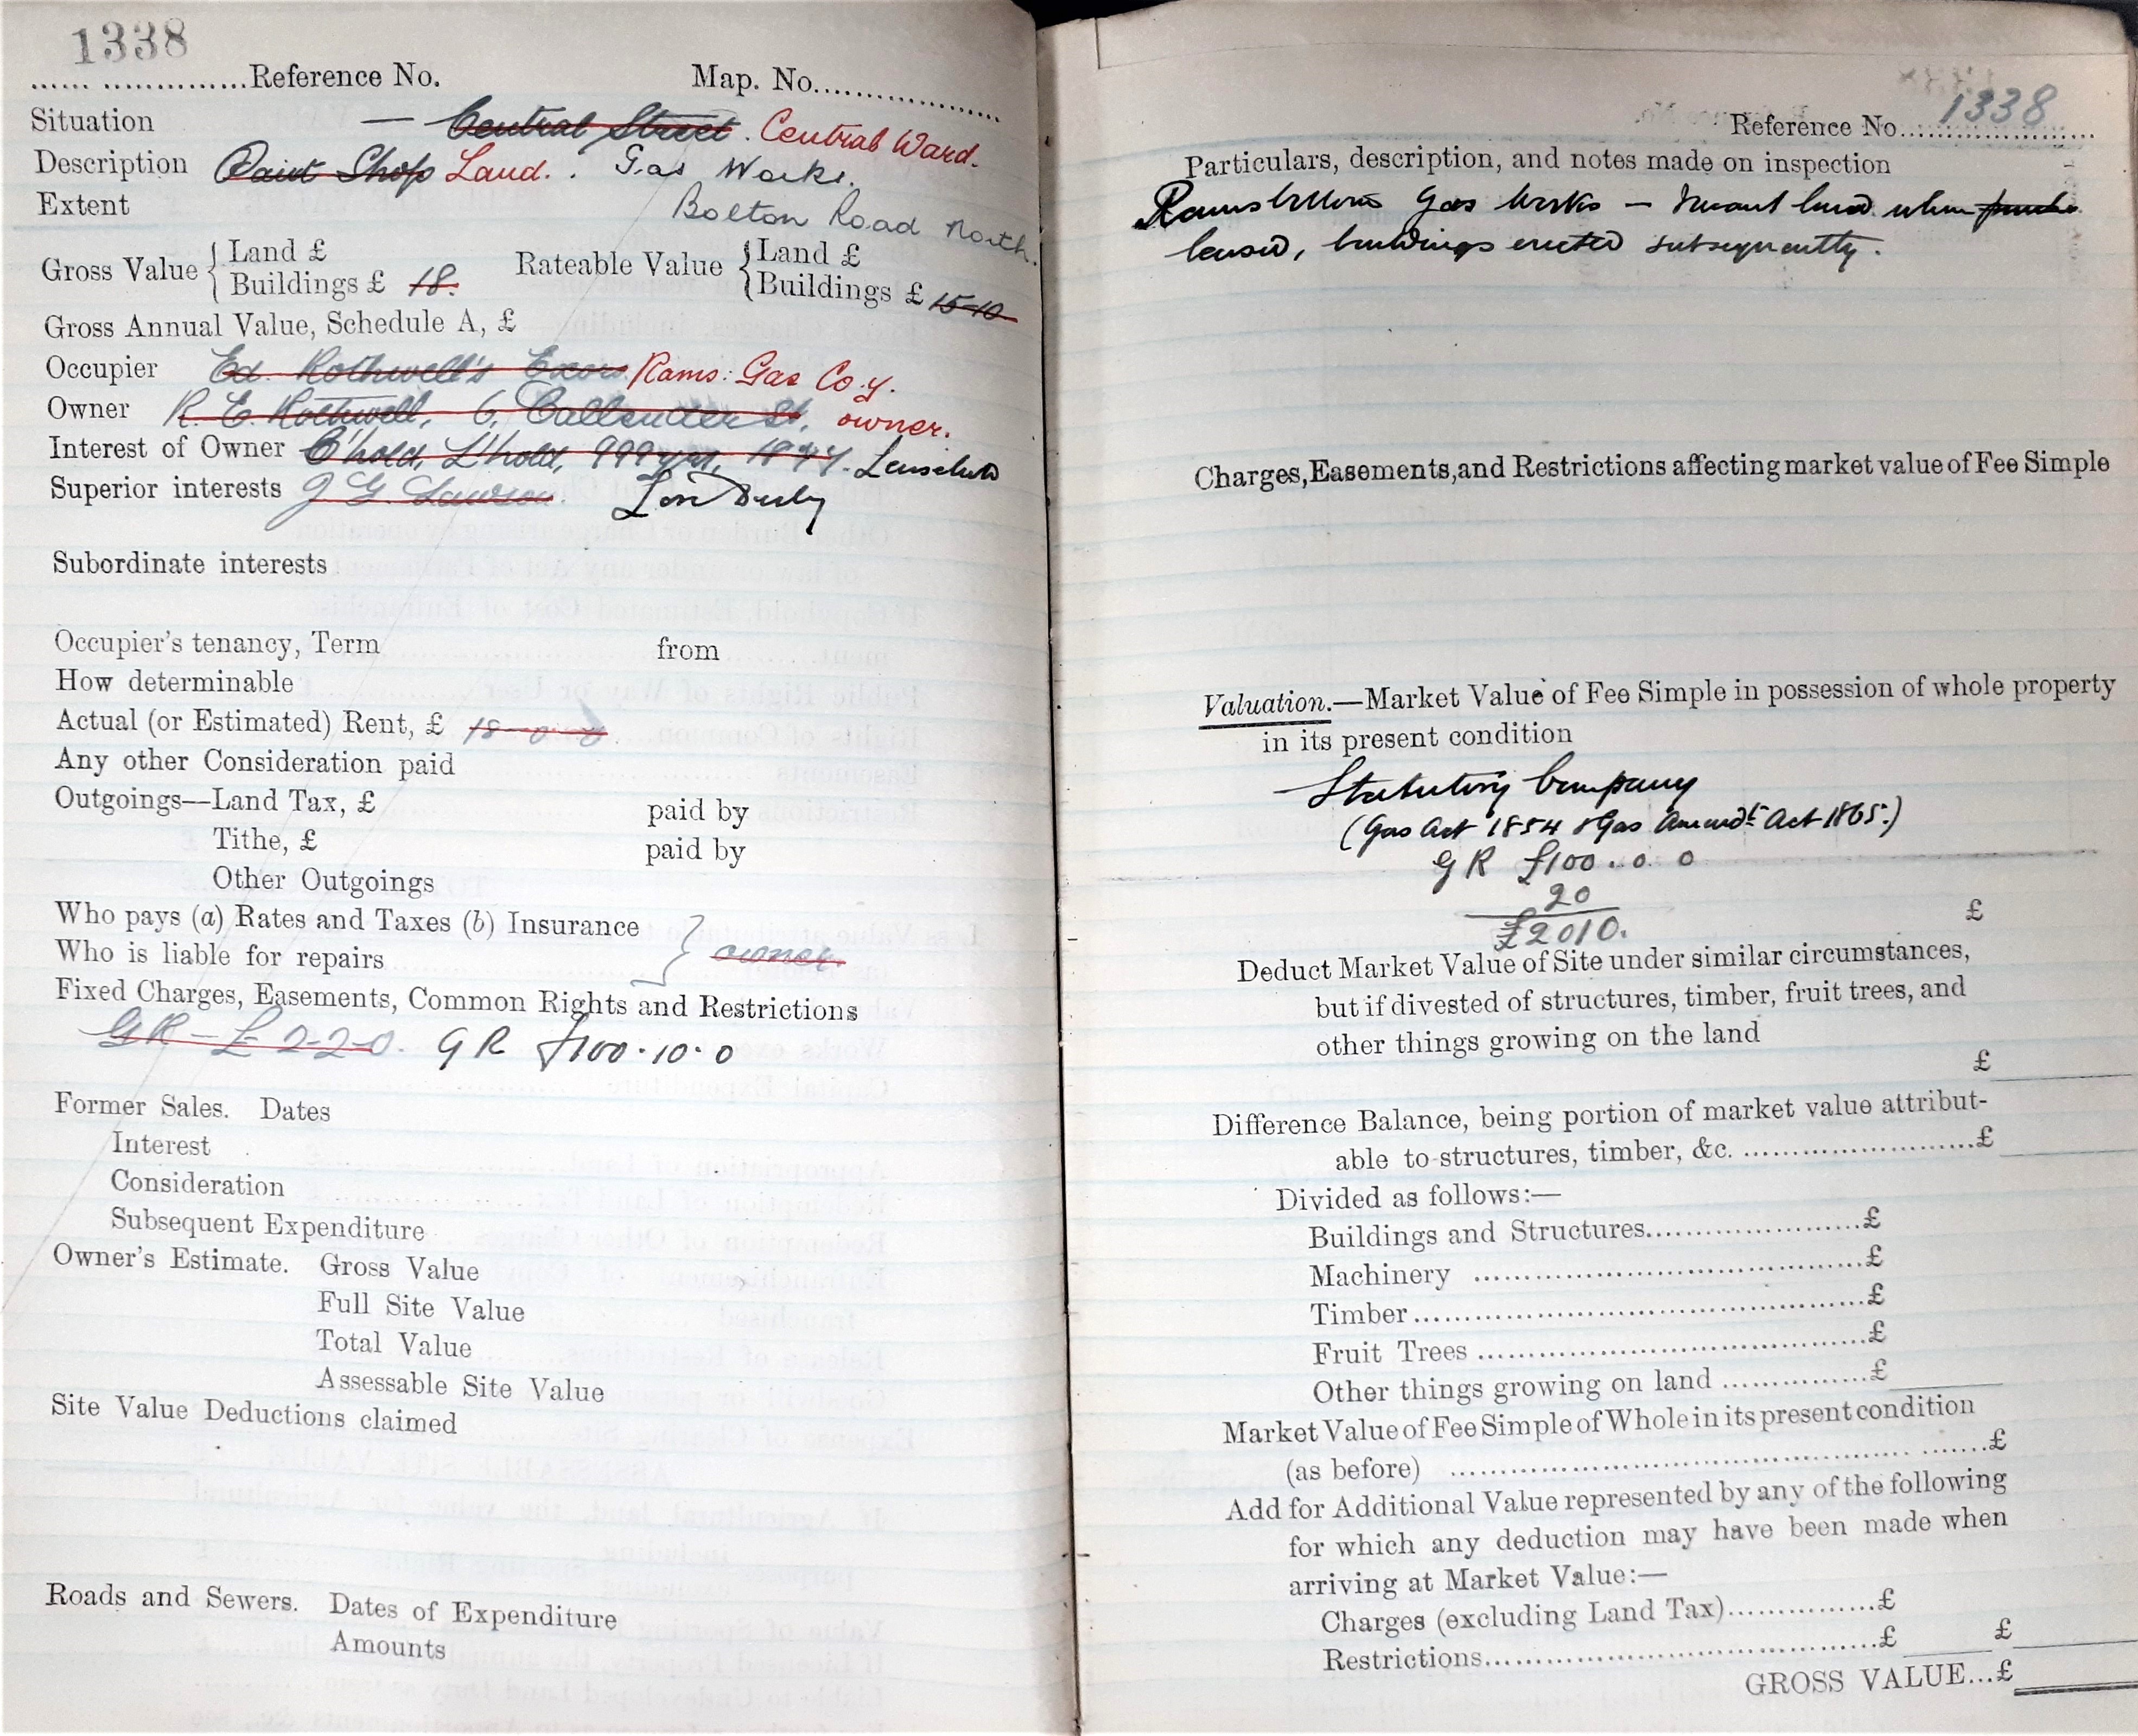 1338
Reference No. Map. No.
Situation — Central Street. Central Ward.
Description Paint Shop Land. : Gas Works.
Extent Bolton Road North.
Gross Value { Land £ Rateable Value { Land £
Buildings £ 18. Buildings £ 15-10
Gross Annual Value, Schedule A, £
Occupier Ed. Rothwell's Exors. Rams: Gas Co.y.
Owner R. E. Rothwell, 6, Callender St, owner.
Interest of Owner C'hold, L'hold, 999 yrs, Leasehold
Superior interests J G Lawson. Lord Derby
Subordinate interests
Occupier's tenancy, Term from
How determinable
Actual (or Estimated) Rent, £ 18-0-0
Any other Consideration paid
Outgoings—Land Tax, £ paid by
Tithe, £ paid by
Other Outgoings
Who pays (a) Rates and Taxes (b) Insurance } owner.
Who is liable for repairs
Fixed Charges, Easements, Common Rights and Restrictions
GR - £ 2-2-0. GR £100.10.0
Former Sales. Dates
Interest
Consideration
Subsequent Expenditure
Owner's Estimate. Gross Value
Full Site Value
Total Value
Assessable Site Value
Site Value Deductions claimed
Roads and Sewers. Dates of Expenditure
Amounts
Reference No. 1338
Particulars, description, and notes made on inspection
Ramsbottom Gas Works — Vacant land when
leased, buildings erected subsequently.
Charges, Easements, and Restrictions affecting market value of Fee Simple
Valuation.—Market Value of Fee Simple in possession of whole property
in its present condition
Statutory Company
(Gas Act 1854 & Gas Amendt Act 1865.)
GR £100.. 0. 0
20
£2010.
£
Deduct Market Value of Site under similar circumstances,
but if divested of structures, timber, fruit trees, and
other things growing on the land
£
Difference Balance, being portion of market value attribut-
able to structures, timber, &c. £
Divided as follows:—
Buildings and Structures £
Machinery £
Timber £
Fruit Trees £
Other things growing on land £
Market Value of Fee Simple of Whole in its present condition
(as before) £
Add for Additional Value represented by any of the following
for which any deduction may have been made when
arriving at Market Value:—
Charges (excluding Land Tax) £
Restrictions £ £
GROSS VALUE...£